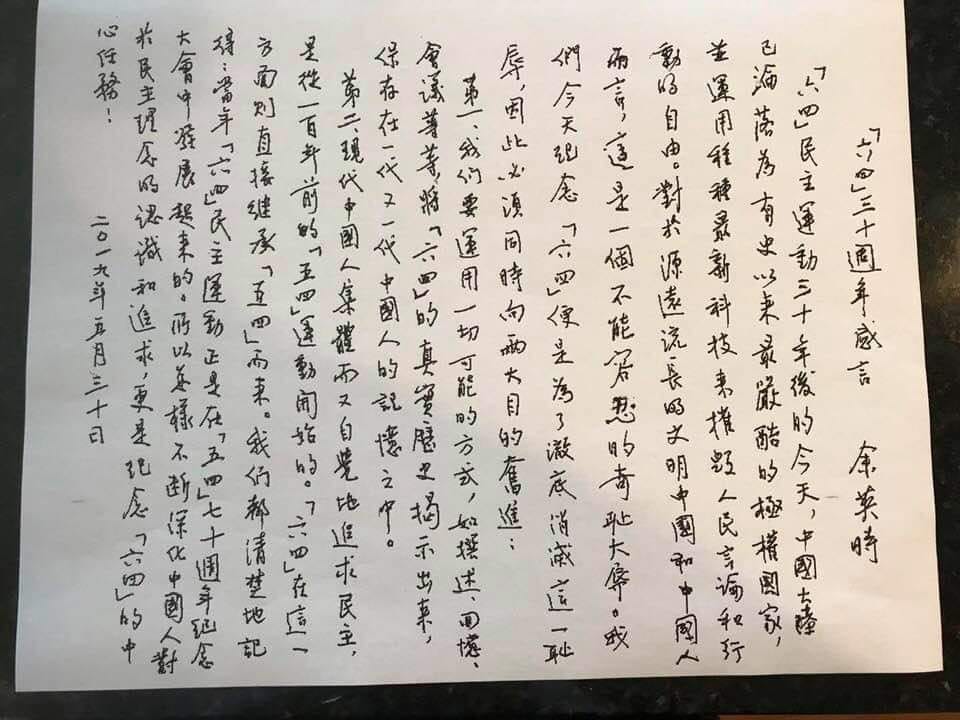 「六四」三十週年感言
余英時
「六四」民主運動三十年後的今天，中國大陸
已淪落為有史以來最嚴酷的極權國家，
並運用種種最新科技來摧毀人民言論和行
動的自由。對於源遠流長的文明中國和中國人
而言，這是一個不能容忍的奇恥大辱。我
們今天紀念「六四」便是為了澈底消滅這一恥
辱，因此必須同時向兩大目的奮進：
第一、我們要運用一切可能的方式，如撰述、回憶、
會議等等，將「六四」的真實歷史揭示出來，
保存在一代又一代中國人的記憶之中。
第二、現代中國人集體而又自覺地追求民主，
是從一百年前的「五四」運動開始的。「六四」在這一
方面則直接繼承「五四」而來。我們都清楚地記
得：當年「六四」民主運動正是在「五四」七十週年紀念
大會中發展起來的。所以怎樣不斷深化中國人對
於民主理念的認識和追求，更是紀念「六四」的中
心任務！
二〇一九年五月三十日